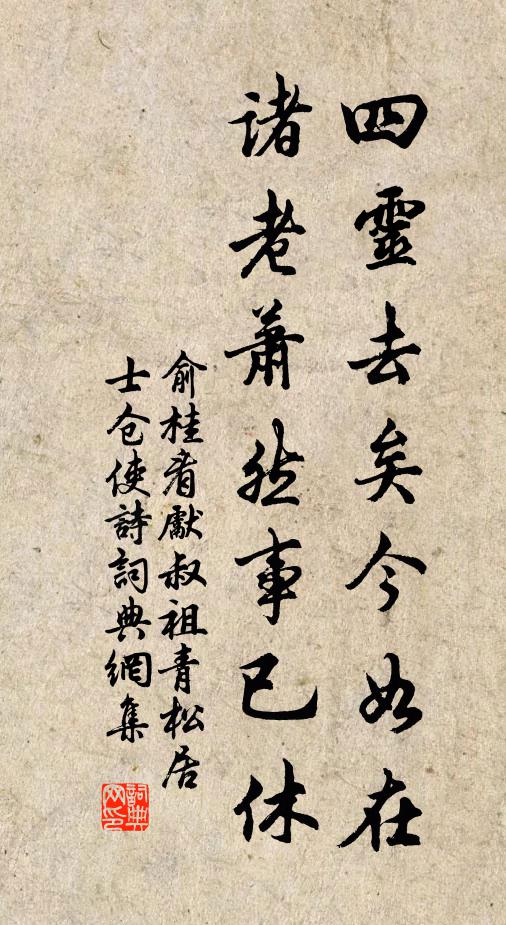 四靈去矣今如在
諸老蕭然事已休
俞桂者獻叔祖青松居
士仓使詩詞典網集
詞典網印